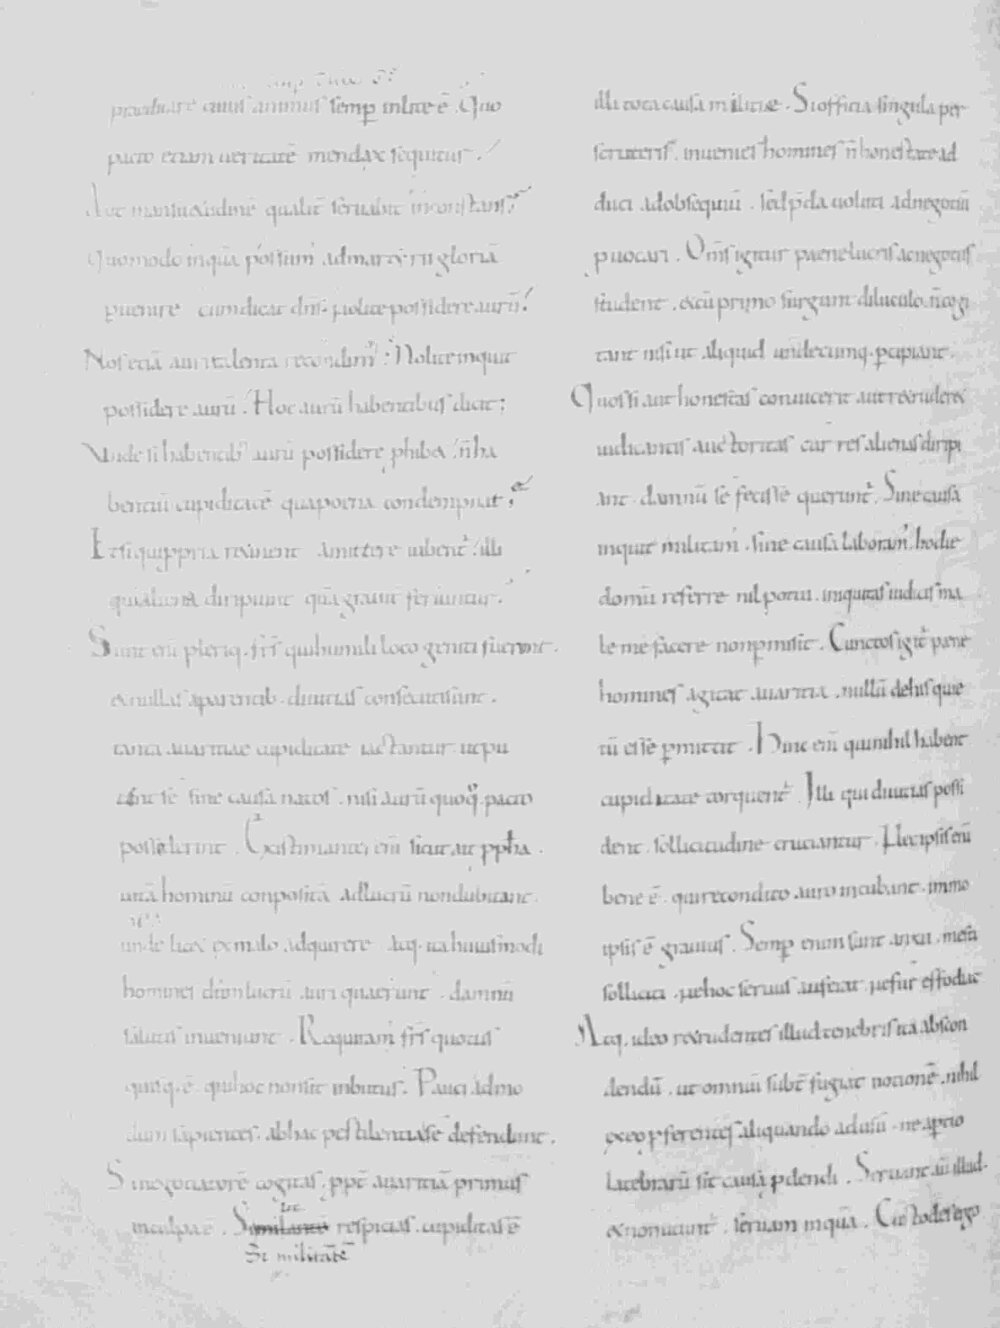 praedicare cuius animus semp̱ inlite ē . Quo
pacto etiam ueritatē mendax sequitur .
Aut mansuetudinē qualit̄ seruabit inconstans ?
Quomodo inquā possum̄ admartyrii gloriā
puenire cum dicat dn̄s . nolite possidere aurū !
Nos etiā auri talenta recondim̄ : Nolite inquit
possidere aurū . Hoc aurū habentibus dicit ;
Unde si habentib; aurū possidere phibet . n̄ ha
bentiū cupiditatē qua poena condempnat ;
Et si qui ppria retinent amittere iubent̄ . illi
qui aliena diripiunt quā grauit̄ feriuntur .
Sunt enī pleriq . frs̄ qui humili loco geniti fuerunt .
et nullas aparentib . diuitias consecuti sunt .
tanta auaritiae cupiditate iactantur ut pu
tent se sine causa natos . nisi aurū quoq . pacto
possederint . Existimantes enī sicut ait pph̄a .
uitā hominū conpositā adlucrū non dubitant .
unde licet ex malo adquirere Atq . ita huiusmodi
homines dum lucrū auri quaerunt . damnū
salutis inueniunt . Requiram̄ frs̄ quotus
quisq . ē . qui hoc non sit inbutus . Pauci admo
dum sapientes . ab hac pestilentia se defendunt .
Si negotiatorē cogitas . ppt̄ auaritiā primus
in culpa ē . Si militantē respicias . cupiditas ē
Si militātē
illi tota causa militiae . Si officia singula per
scruteris . inuenies homines n̄ honestate ad
duci adobsequiū . sed p̄da uoluti adnegotiū
puocari . Om̄s igitur paene lucris ac negotiis
student . et cū primo surgunt diluculo . n̄ cogi
tant nisi ut aliquid undecumq . p̱cipiant .
Quos si aut honestas conuicerit aut retruderet
iudicantis auctoritas cur res alienas diripi
ant . damnū se fecisse querunt̄ . Sine causa
inquit militam̄ . sine causa laboram̄ . hodie
domū referre nil potui . iniquitas iudicis ma
le me facere non p̱misit . Cunctos igit̄ paene
homines agitat auaritia . nullū de his quie
tū esse p̱mittit . Hinc enī qui nihil habent
cupiditate torquent̄ . Illi qui diuitias possi
dent . sollicitudine cruciantur . Nec ipsis enī
bene ē . qui recondito auro incubant . immo
ipsis ē grauius . Semp̱ enim sunt anxii . mesti
solliciti . ne hoc seruus auferat . ne fur effodiat
Atq . ideo retrudentes illud tenebris ita abscon
dendū . ut omniū subt̄ fugiat notionē . nihil
ex eo pferentes aliquando ad usū . ne aptio
latebrarū sit causa pdendi . Seruant aū illud .
et non utunt̄ . seruam inquā . Custodes ergo